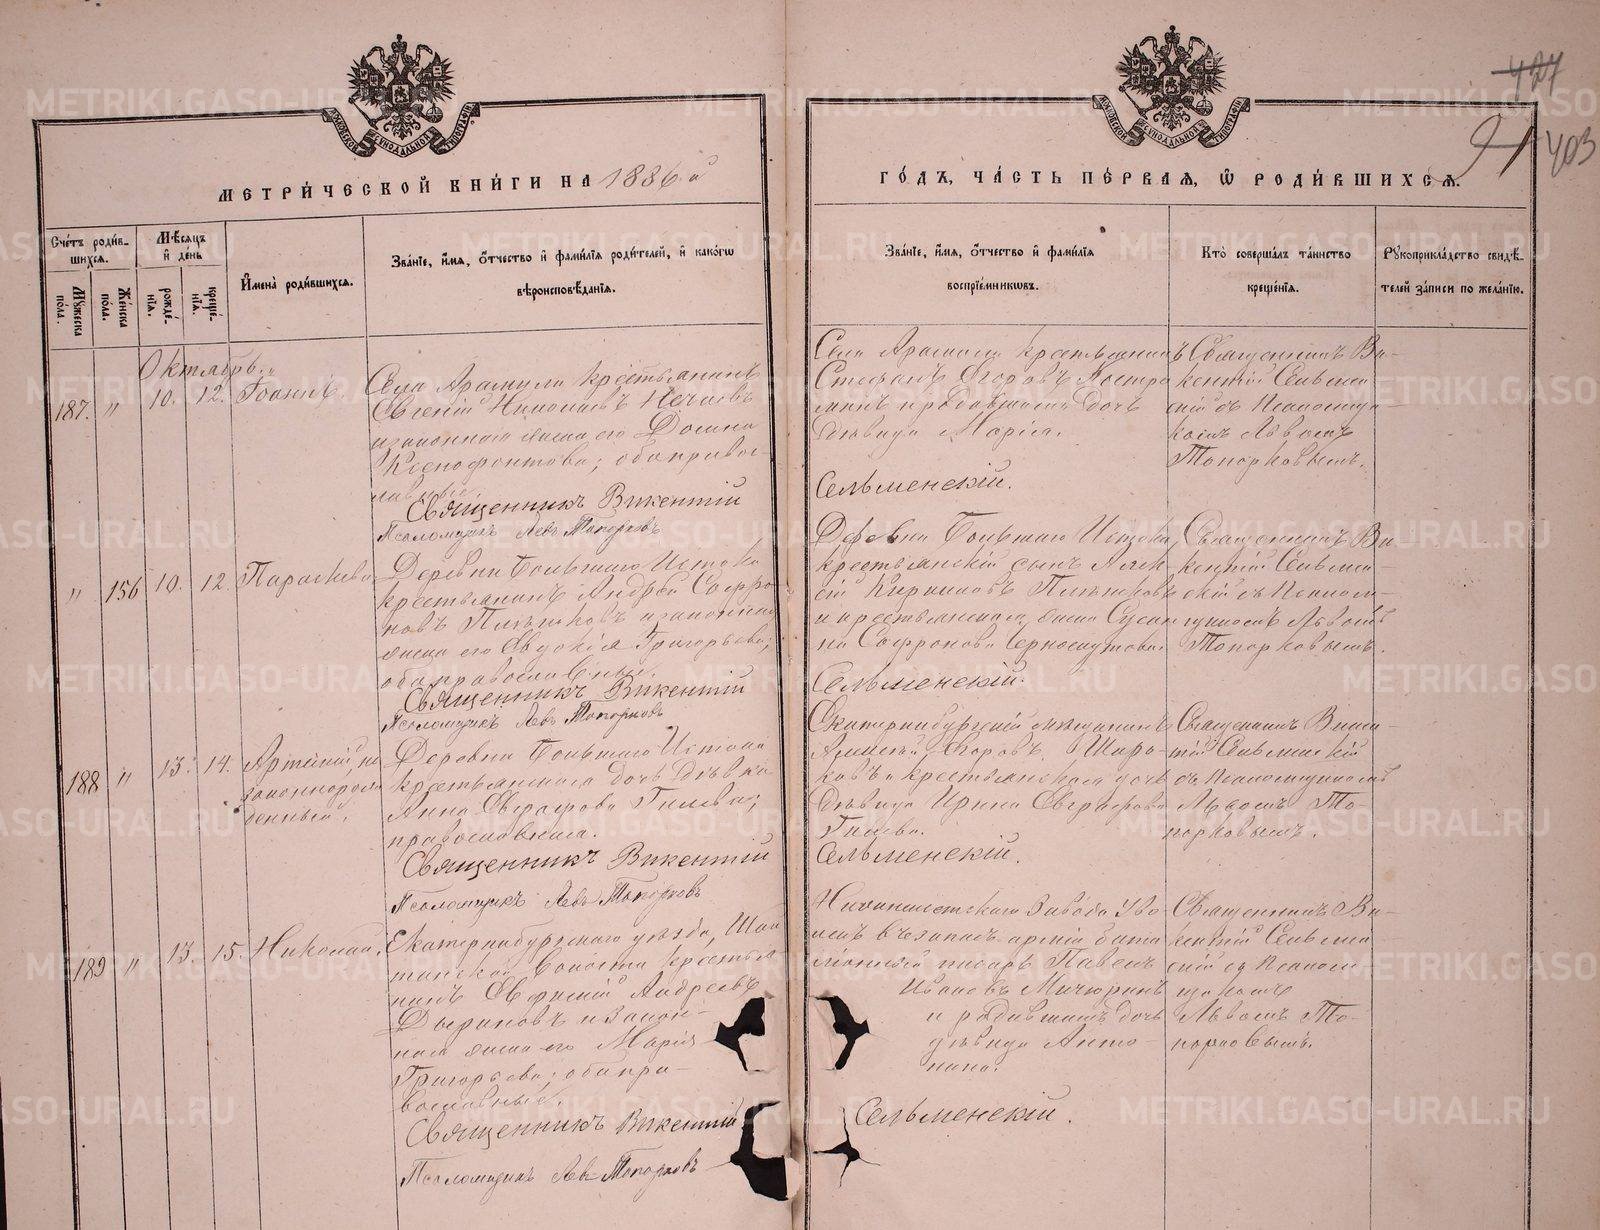 427
91 403
МЕТРИ́ЧЕСКОЙ КНИ́ГИ НА 1886й
ГО́ДЪ, ЧА́СТЬ ПЕ́РВАЯ, Ѡ҆ РОДИ́ВШИХСЯ.
Сче́тъ роди́в-
шихся.
Мѣ́сяцъ
и҆ де́нь
Мꙋ́жеска
по́ла.
Же́нска
по́ла.
рожде́-
нїя.
креще́-
нїя.
И҆мена̀ роди́вшихся.
Зва́нїе, и҆́мя, ѻ҆́тчество и҆ фами́лїя роди́телей, и҆ како́гѡ
вѣроисповѣ́данїя.
Зва́нїе, и҆́мя, ѻ҆́тчество и҆ фами́лїя
воспрїе́мникѡвъ.
Кто̀ соверша́лъ та́инство
креще́нїя.
Рꙋкоприкла́дство свидѣ́-
телей за́писи по жела́нїю.
Октябрь.
187. " 10. 12. Іоаннъ.
Села Арамили крестьянинъ
Евгеній Николаевъ Нечаевъ
и законная жена его Домна
Ксенофонтова; оба правос-
лавные.
Священникъ Викентій
Псаломщикъ Левъ Топорковъ
Села Арамили крестьянинъ
Стефанъ Егоровъ Костро
минъ и родившаго дочь
дѣвица Марія.
Сельменскій.
Священникъ Ви-
кентій Сельмен
скій съ Псаломщи-
комъ Львомъ
Топорковымъ.
" 156 10. 12. Параскева
Деревни Большаго Истока
крестьянинъ Андрей Софро
новъ Плѣшковъ и законная
жена его Евдокія Григорьева;
оба православные.
Священникъ Викентій
Псаломщикъ Левъ Топорковъ
Деревни Большаго Истока
крестьянскій сынъ Алек
сій Кириковъ Плѣшковъ
и крестьянская жена Сусан
на Софронова Черноскутова.
Сельменскій.
Священникъ Ви
кентій Сельмен-
скій съ Псалом-
щикомъ Львомъ
Топорковымъ.
188 " 13. 14. Артемій, не
законнорож
денный.
Деревни Большаго Истока
крестьянская дочь дѣвка
Анна Евграфова Гилева;
православная.
Священникъ Викентій
Псаломщикъ Левъ Топорковъ
Екатеринбургскій мѣщанинъ
Алексѣй Егоровъ Широ-
ковъ и крестьянская дочь
дѣвица Ирина Евграфова
Гилева.
Сельменскій.
Священникъ Викен-
тій Сельменскій
съ Псаломщикомъ
Львомъ То-
порковымъ.
189 " 13. 15. Николай.
Екатеринбургскаго уѣзда, Шай
танской волости крестья
нинъ Евфимій Андреевъ
и закон-
ная жена его Марія
Григорьева; оба пра-
вославные.
Священникъ Викентій
Псаломщикъ Левъ Топорковъ
Завода Уво
лен въ запасъ арміи бата
ліонный писарь Павелъ
Ивановъ Мичуринъ
и родившихъ дочь
дѣвица Анто-
нина.
Сельменскій.
Священникъ Ви-
кентій Сельмен
скій съ Псалом
щикомъ
Львомъ То-
порковымъ.